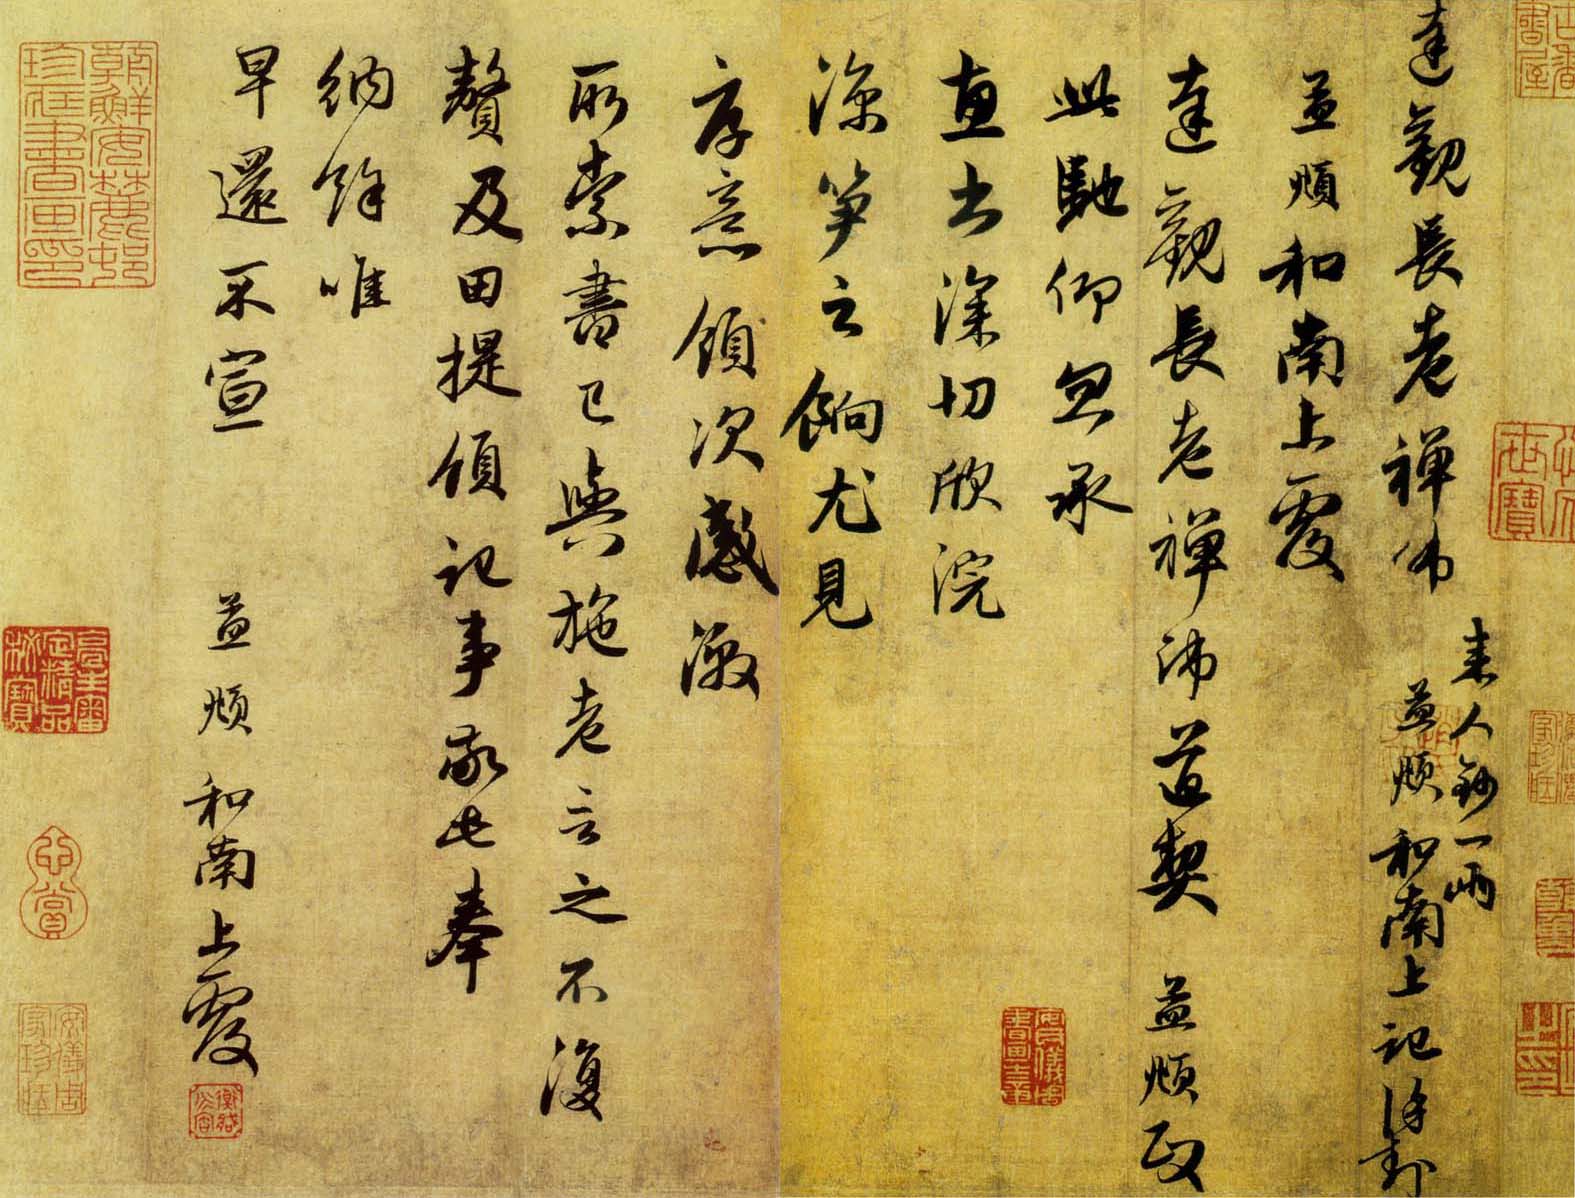 達觀長老禪師
來人鈔一兩
孟頫和南上記謹封
孟頫和南上覆
達觀長老禪師道契 孟頫政
此馳仰忽承
惠書深切欣浣
凉筍之餉尤見
厚意領次感激
所索書已與施老言之不復
贅及田提領記事敬此奉
納餘唯
早還不宣
孟頫和南上覆
朝鮮安岐
珍藏書畫印